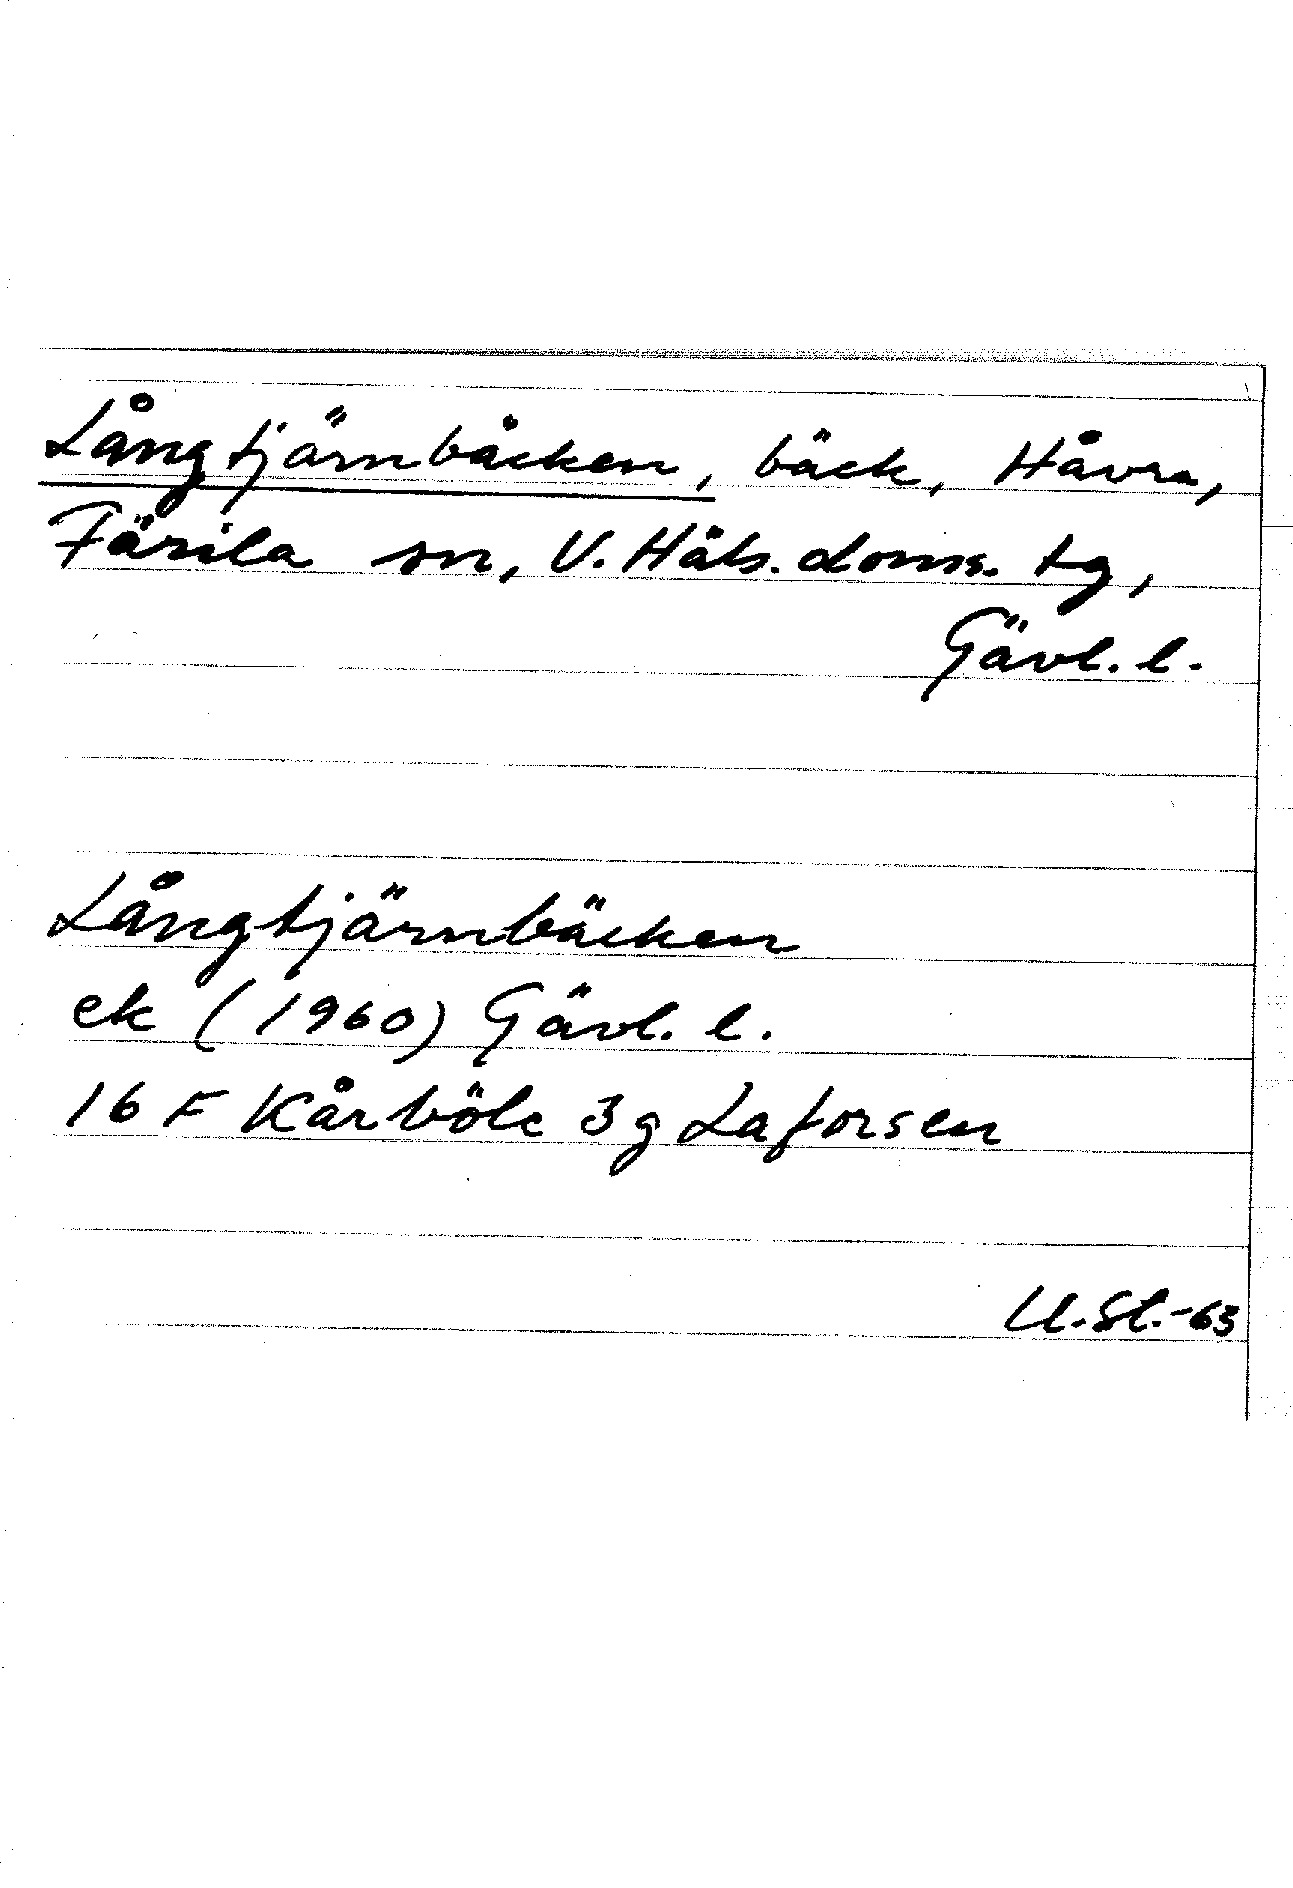 Långtjärnbäcken, bäck, Håvra,
Färila sn, V. Häls. doms. tg,
Gävl. l.
Långtjärnbäcken
ek (1960) Gävl. l.
16 F Kårböle 3g Laforsen
U.St.-63